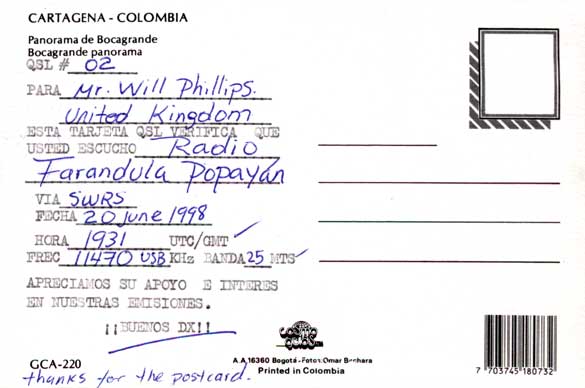 CARTAGENA - COLOMBIA
Panorama de Bocagrande
Bocagrande panorama
QSL # 02
PARA Mr. Will Phillips.
United Kingdom
ESTA TARJETA QSL VERIFICA QUE
USTED ESCUCHO Radio
Farandula Popayán
VIA SWRS
FECHA 20 june 1998
HORA 1931 UTC/GMT
FREC 11470 USB KHz BANDA 25 MTS
APRECIAMOS SU APOYO E INTERES
EN NUESTRAS EMISIONES.
¡¡BUENOS DX!!
GCA-220
thanks for the postcard.
A.A. 16360 Bogotá - Fotos: Omar Bechara
Printed in Colombia
7 703745 180732